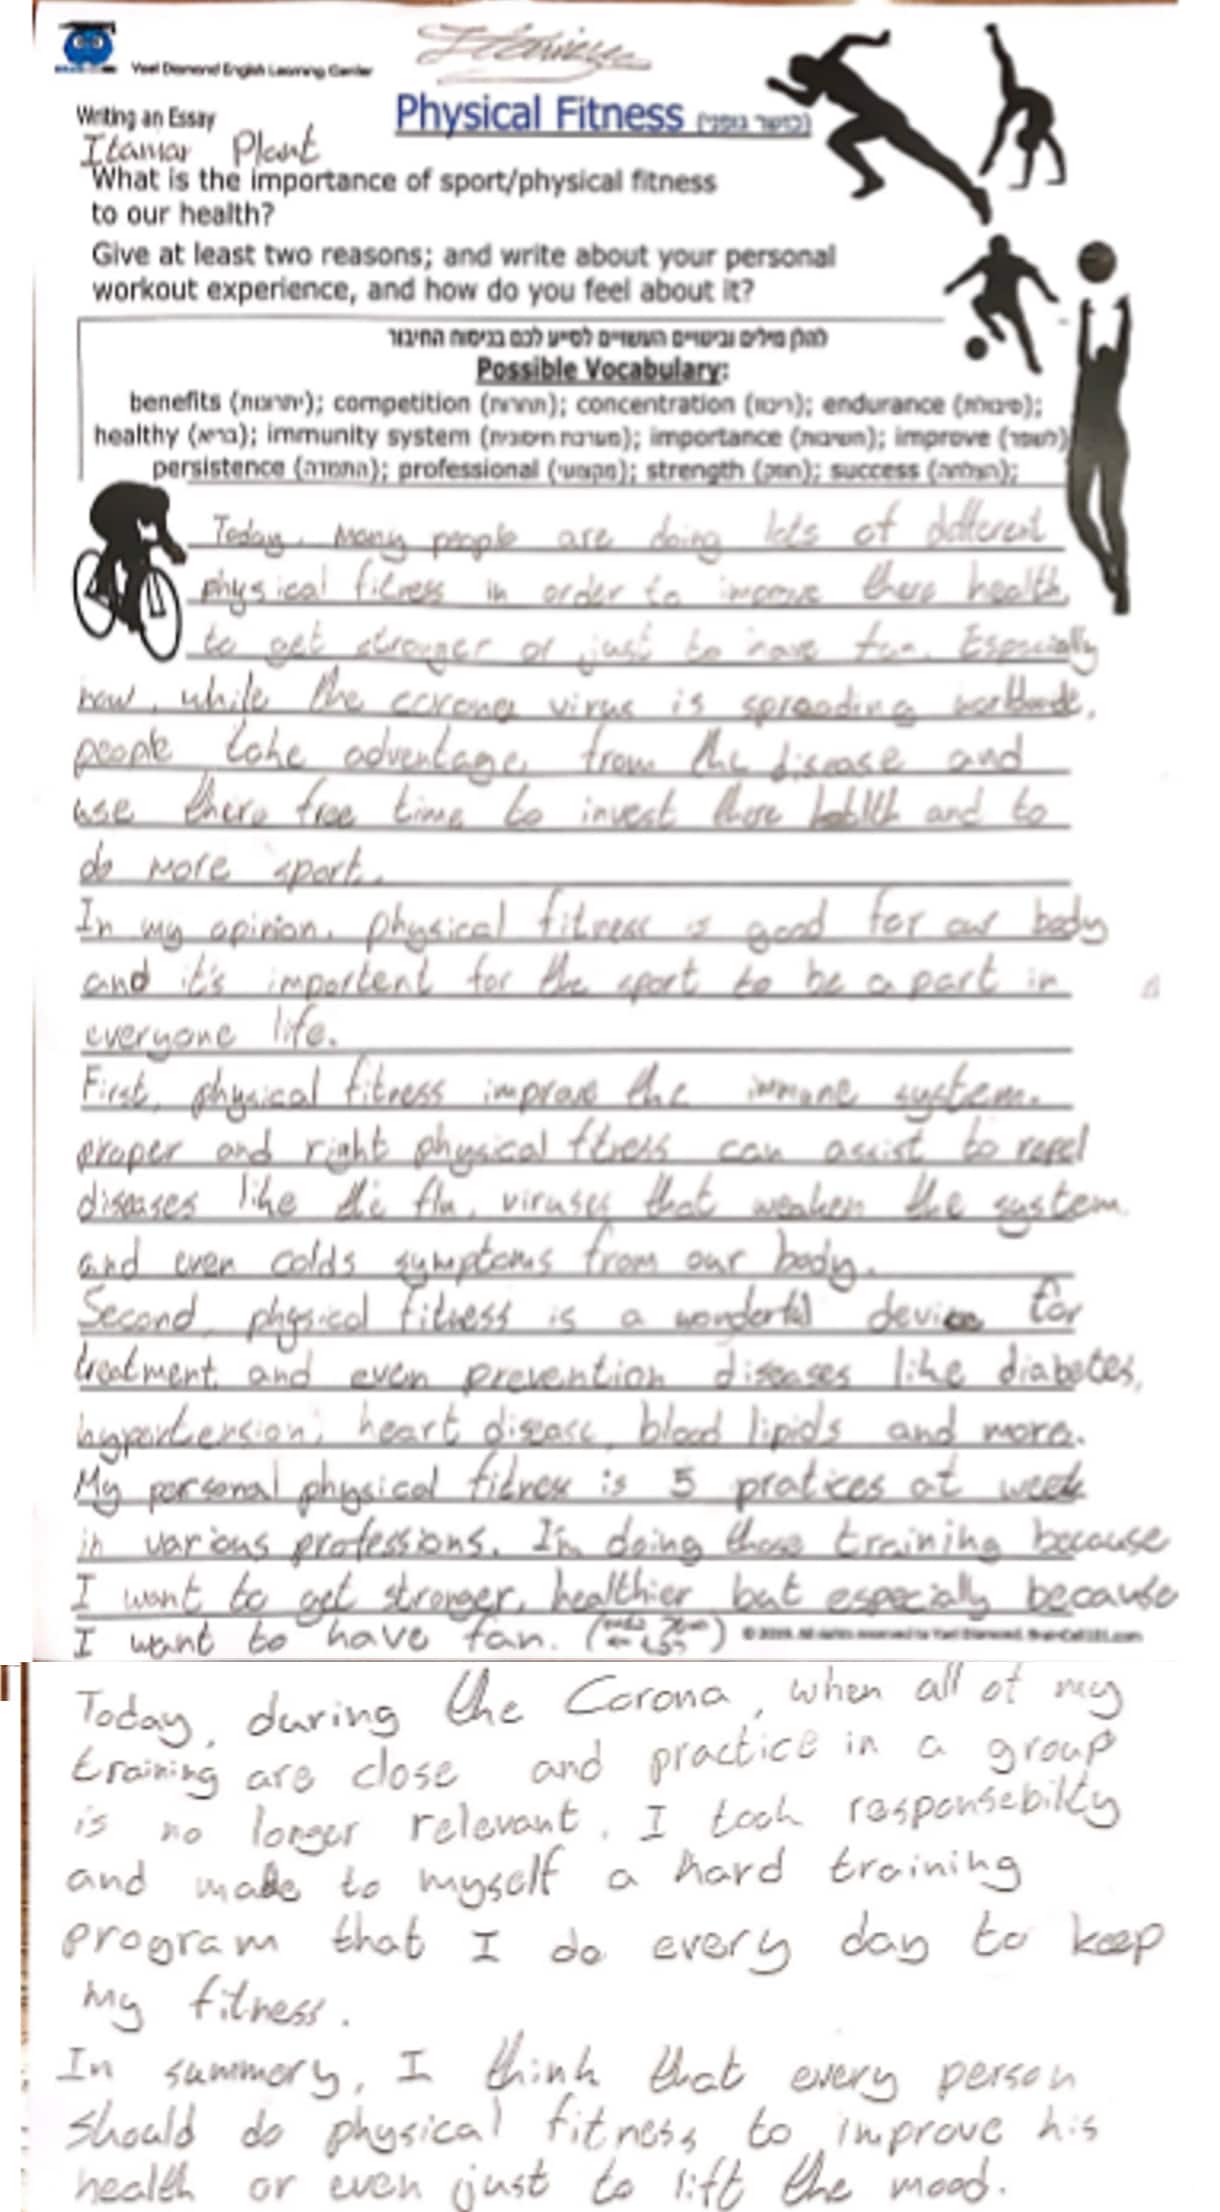 Yael Diamond English Learning Center
Writing an Essay
Physical Fitness (כושר גופני)
Itamar Plant
What is the importance of sport/physical fitness
to our health?
Give at least two reasons; and write about your personal
workout experience, and how do you feel about it?
להלן מילים וביטויים העשויים לסייע לכם בניסוח החיבור
Possible Vocabulary:
benefits (יתרונות); competition (תחרות); concentration (ריכוז); endurance (סיבולת);
healthy (בריא); immunity system (מערכת חיסונית); importance (חשיבות); improve (לשפר)
persistence (התמדה); professional (מקצועי); strength (חוזק); success (הצלחה);
Today, Many people are doing lots of different
physical fitness in order to improve there health,
to get stronger or just to have fun. Especially
now, while the corona virus is spreading worldwide,
people take advantage from the disease and
use there free time to invest there health and to
do more sport.
In my opinion, physical fitness is good for our body
and it's importent for the sport to be a part in
everyone life.
First, physical fitness improve the immune system.
proper and right physical fitness can assist to repel
diseases like the flu, viruses that weaken the system
and even colds symptoms from our body.
Second, physical fitness is a wonderful device for
treatment and even prevention diseases like diabetes,
hypertension, heart disease, blood lipids and more.
My personal physical fitness is 5 pratices at week
in various professions. I'm doing those training because
I want to get stronger, healthier but especially because
I want to have fun.
© 2019. All rights reserved to Yael Diamond, BrainCell101.com
Today, during the Corona, when all of my
training are close and practice in a group
is no longer relevant, I took responsebilty
and made to myself a hard training
program that I do every day to keep
my fitness.
In summory, I think that every person
should do physical fitness to improve his
health or even just to lift the mood.